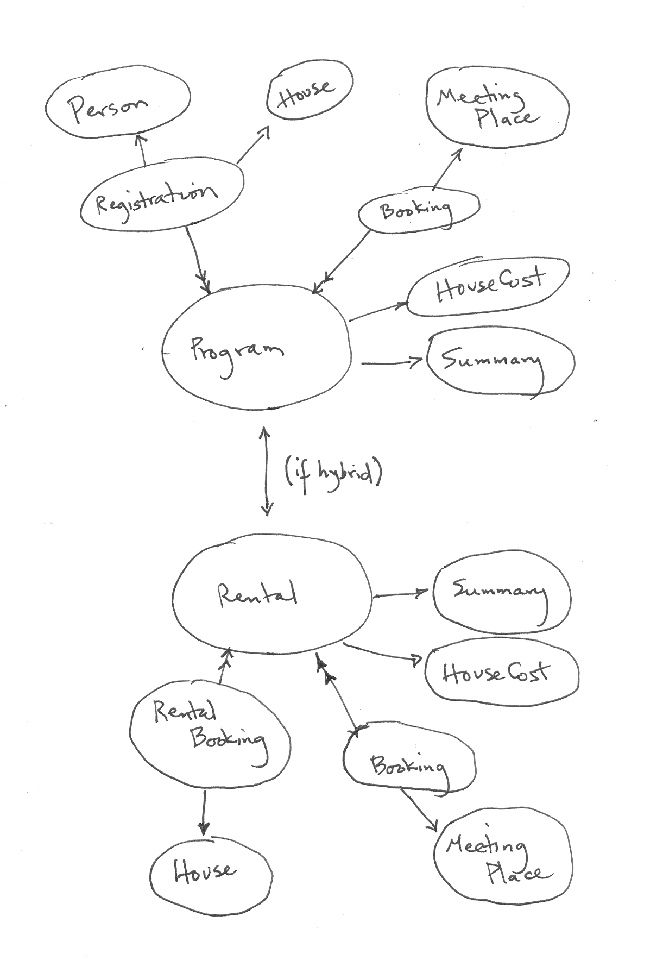 Person
House
Meeting
Place
Registration
Booking
HouseCost
Program
Summary
(if hybrid)
Rental
Summary
HouseCost
Rental
Booking
Booking
House
Meeting
Place